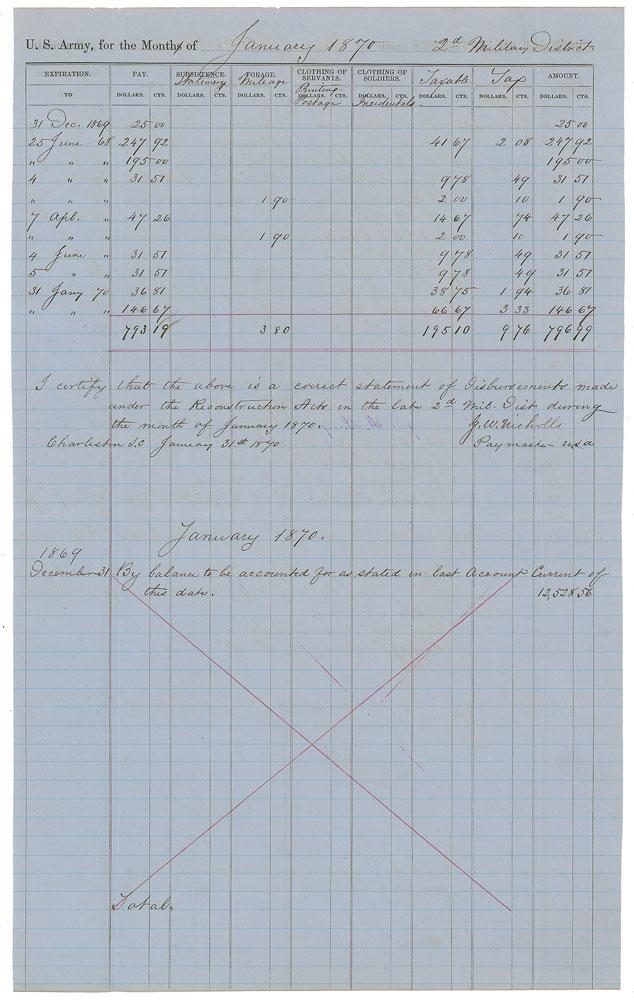 U. S. Army, for the Months of January 1870 2d Military District
EXPIRATION. PAY. SUBSISTENCE. FORAGE. CLOTHING OF SERVANTS. CLOTHING OF SOLDIERS. Taxable Tax AMOUNT.
Stationery Mileage Printing Postage Incidentals
TO DOLLARS. CTS. DOLLARS. CTS. DOLLARS. CTS. DOLLARS. CTS. DOLLARS. CTS. DOLLARS. CTS. DOLLARS. CTS. DOLLARS. CTS.
31 Dec. 1869 25 00 25 00
25 June 68 247 92 41 67 2 08 247 92
" " " 195 00 195 00
4 " " 31 51 9 78 49 31 51
" " " 1 90 2 00 10 1 90
7 Apl. " 47 26 14 67 74 47 26
" " " 1 90 2 00 10 1 90
4 June " 31 51 9 78 49 31 51
5 " " 31 51 9 78 49 31 51
31 Jany 70 36 81 38 75 1 94 36 81
" " " 146 67 66 67 3 33 146 67
793 19 3 80 195 10 9 76 796 99
I certify that the above is a correct statement of Disbursements made
under the Reconstruction Acts in the late 2d Mil. Dist during
the month of January 1870. J. W. Nicholls
Charleston S.C January 31st 1870 Paymaster USA
January 1870.
1869
December 31 By balance to be accounted for as stated in last Account Current of
this date. 12,528 56
Total.